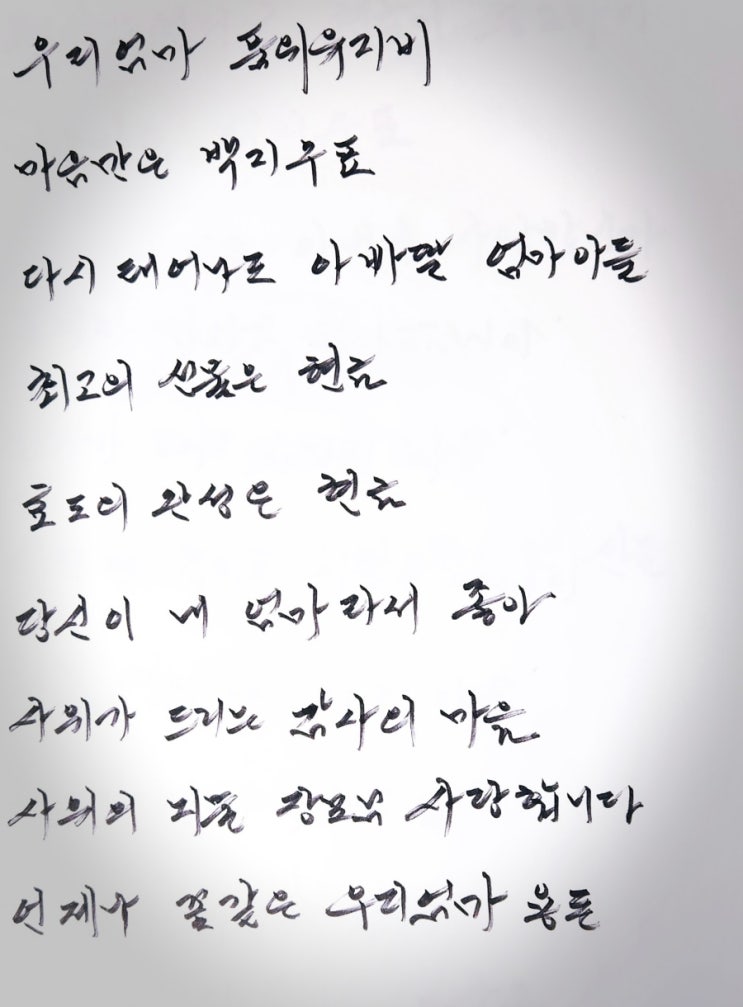 우리엄마 품위유지비
마음만은 백지수표
다시 태어나도 아빠딸 엄마아들
최고의 선물은 현금
효도의 완성은 현금
당신이 내 엄마라서 좋아
사위가 드리는 감사의 마음
사위의 뇌물 장모님 사랑합니다
언제나 꽃같은 우리엄마 용돈